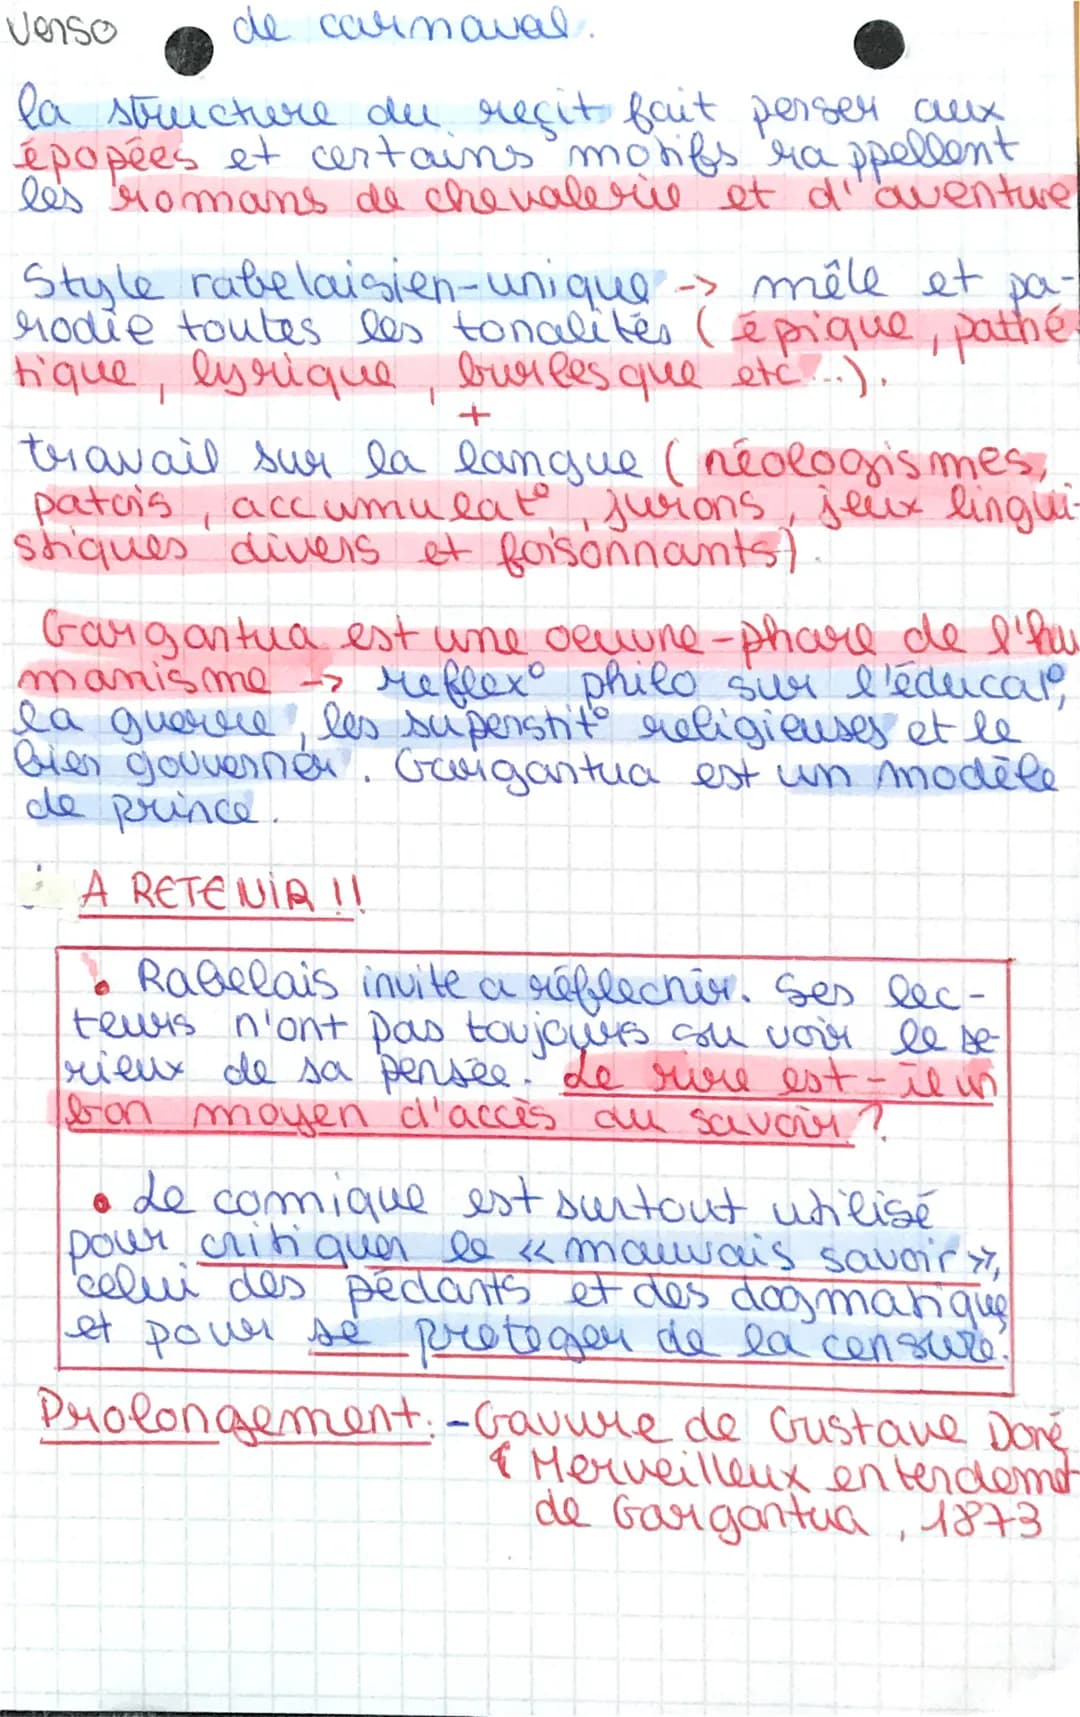 verso
de carnaval.
la structure du reçit fait penser aux
épopées et certains motifs rappellent
les romans de chevalerie et d'aventure
Style rabelaisien-unique -> mêle et pa-
rodie toutes les tonalités (épique, pathé
tique, lyrique, burlesque etc...).
+
travail sur la langue (néologismes,
patois, accumulat°, jurons, jeux lingui-
stiques divers et foisonnants).
Gargantua est une oeuvre-phare de l'hu
manisme -> reflex° philo sur l'éducat°,
la guerre, les superstit° religieuses et le
bien gouverner. Gargantua est un modèle
de prince.
A RETENIR !!
• Rabelais invite a réflechir. Ses lec-
teurs n'ont pas toujours su voir le se-
rieux de sa pensée. Le rire est-il un
bon moyen d'accès au savoir ?
• Le comique est surtout utilisé
pour critiquer le « mauvais savoir »,
celui des pédants et des dogmatiques
et pour se proteger de la censure.
Prolongement: - Gavure de Gustave Doré
Merveilleux entendemt
de Gargantua, 1873